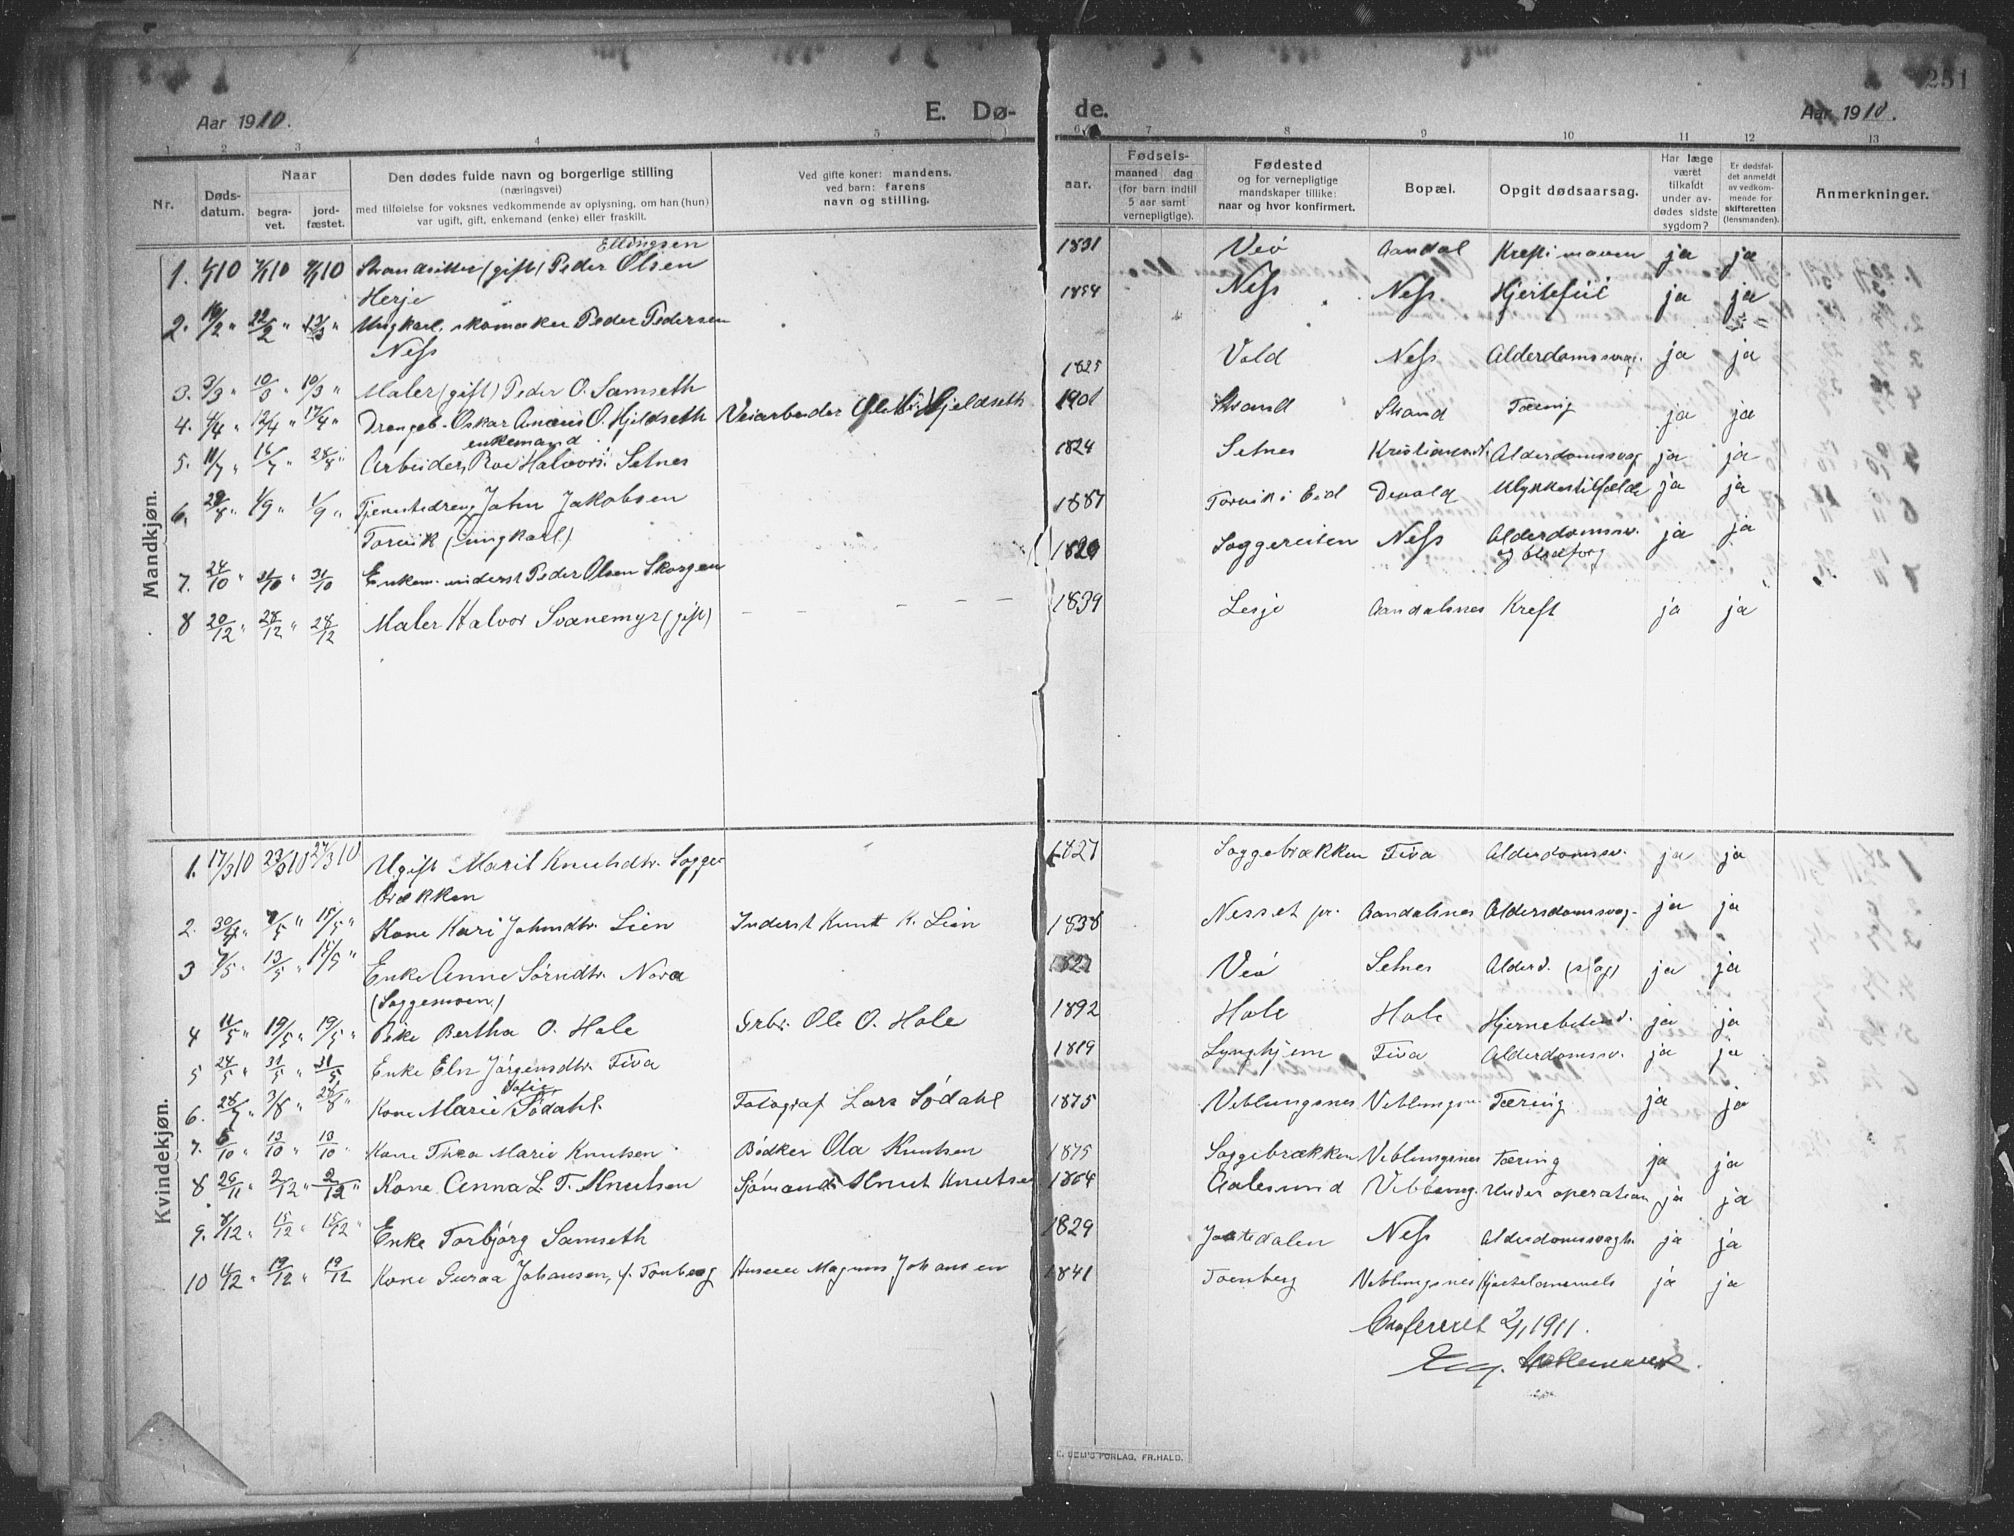 251
Aar 1910.
E. Dø-
de.
Aar 1910.
1 2 3 4 5 6 7 8 9 10 11 12 13
Nr.
Døds-datum.
Naar
begra-vet.
jord-fæstet.
Den dødes fulde navn og borgerlige stilling
(næringsvei)
med tilføielse for voksnes vedkommende av oplysning, om han (hun)
var ugift, gift, enkemand (enke) eller fraskilt.
Ved gifte koner: mandens.
ved barn: farens
navn og stilling.
aar.
Fødsels-
maaned dag
(for barn indtil
5 aar samt
vernepligtige).
Fødested
og for vernepligtige
mandskaper tillike:
naar og hvor konfirmert.
Bopæl.
Opgit dødsaarsag.
Har læge
været
tilkaldt
under av-
dødes sidste
sygdom?
Er dødsfal-
det anmeldt
av vedkom-
mende for
skifteretten
(lensmanden).
Anmerkninger.
Mandkjøn.
Ellingsen
1. 10 10 10 Strandsitter (gift) Peder Olsen 1831 Veø Aandal Kræft i maven ja ja
Herje
2. 16/2 " 22/2 " 13/3 " Ungkarl, skomaker Peder Pedersen 1854 Ness Ness Hjertefeil ja ja
Ness
3. 3/3 " 10/3 " 10/3 " Maler (gift) Peder O. Samseth 1825 Vold Ness Alderdomssvag. ja ja
4. 4/4 " 12/4 " 17/4 " Drengeb. Oskar O. Hjeldseth Veiarbeider Hjeldseth 1901 Strand Strand Tæring ja ja
enkemand
5. 11/7 " 16/7 " 28/8 " Arbeider, Roe Halvors. Setnes 1824 Setnes Alderdomssvag ja ja
6. 28/8 " 1/9 " 1/9 " Tjenestedreng John Jakobsen 1887 Torvik i Eid Devold Ulykkestilfælde ja ja
Torvik (ungkarl)
7. 24/10 " 31/10 " 31/10 Enkem. inderst Peder Olsen Skorgen 1820 Soggereiten Ness Alderdomssv. ja ja
8 20/12 " 28/12 " 28/12 Maler Halvor Svanemyr (gift) 1839 Lesje Aandalsnes Kreft ja ja
Kvindekjøn.
1. 17/3 10 23/3 10 27/3 10 Ugift Marit Knutsdtr. Sogge- 1827 Soggebrækken Tiva Alderdomssv. ja ja
brækken
2. 30/4 " 7/5 " 15/5 " Kone Kari Johnsdtr. Lien Inderst Knut K. Lien 1838 Nesset pr. Aandalsnes Aldersdomssvag. ja ja
3 7/5 " 13/5 " 15/5 " Enke Anne Sørndtr. Nora Veø Setnes Alderd. (slag) ja ja
(Soggemoen)
4 11/5 " 19/5 " 19/5 " Pike Bertha O. Hole Grbr. Ole O. Hole 1892 Hole Hole ja ja
5 24/5 " 31/5 " 31/5 Enke Eln Jørgensdtr. Tiva 1819 Lynghjem Tiva Alderdomssv. ja ja
Sofie
6. 28/7 " 3/8 " 28/8 " Kone Marie Sødahl. Fotograf Lars Sødahl 1875 Veblungsnes Veblungsn. Tæring ja ja
7. 5/10 " 13/10 " 13/10 " Kone Thea Marie Knutsen Bødker Ola Knutsen 1875 Soggebrækken Veblungsnes Tæring ja ja
8 26/11 " 2/12 " 2/12 " Kone Anna L. T. Knutsen Sjømand Knut Knutse 1864 Aalesund Veblung. Under operation ja ja
9. 8/12 " 15/12 " 15/12 " Enke Torbjørg Samseth 1829 Jostedalen Ness Alderdomssvagh. ja ja
10 11/12 " 19/12 " 19/12 Kone Guraa Johansen, f. Tonberg Huseier Magnus Johansen 1841 Toenberg Veblungsnes Hjertelammels ja ja
Confereret 2/1 1911.
FORLAG, FR.HALD.